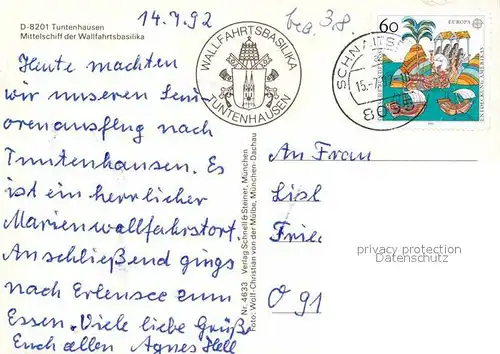 14.7.92
bea. 3.8.
D-8201 Tuntenhausen
Mittelschiff der Wallfahrtsbasilika
WALLFAHRTSBASILIKA
TUNTENHAUSEN
60
EUROPA
ENTDECKUNG AMERIKAS
15.-7.
Heute machten
wir unseren Seni
orenausflug nach
Tuntenhausen. Es
ist ein herrlicher
Marienwallfahrtsort.
Anschließend gings
nach Erlensee zum
Essen. Viele liebe Grüße
Euch allen Agnes Hell
Nr. 4633 Verlag Schnell & Steiner, München
Foto: Wolf-Christian von der Mülbe, München-Dachau
An Frau
Lisl
Frie
O 91
privacy protection
Datenschutz